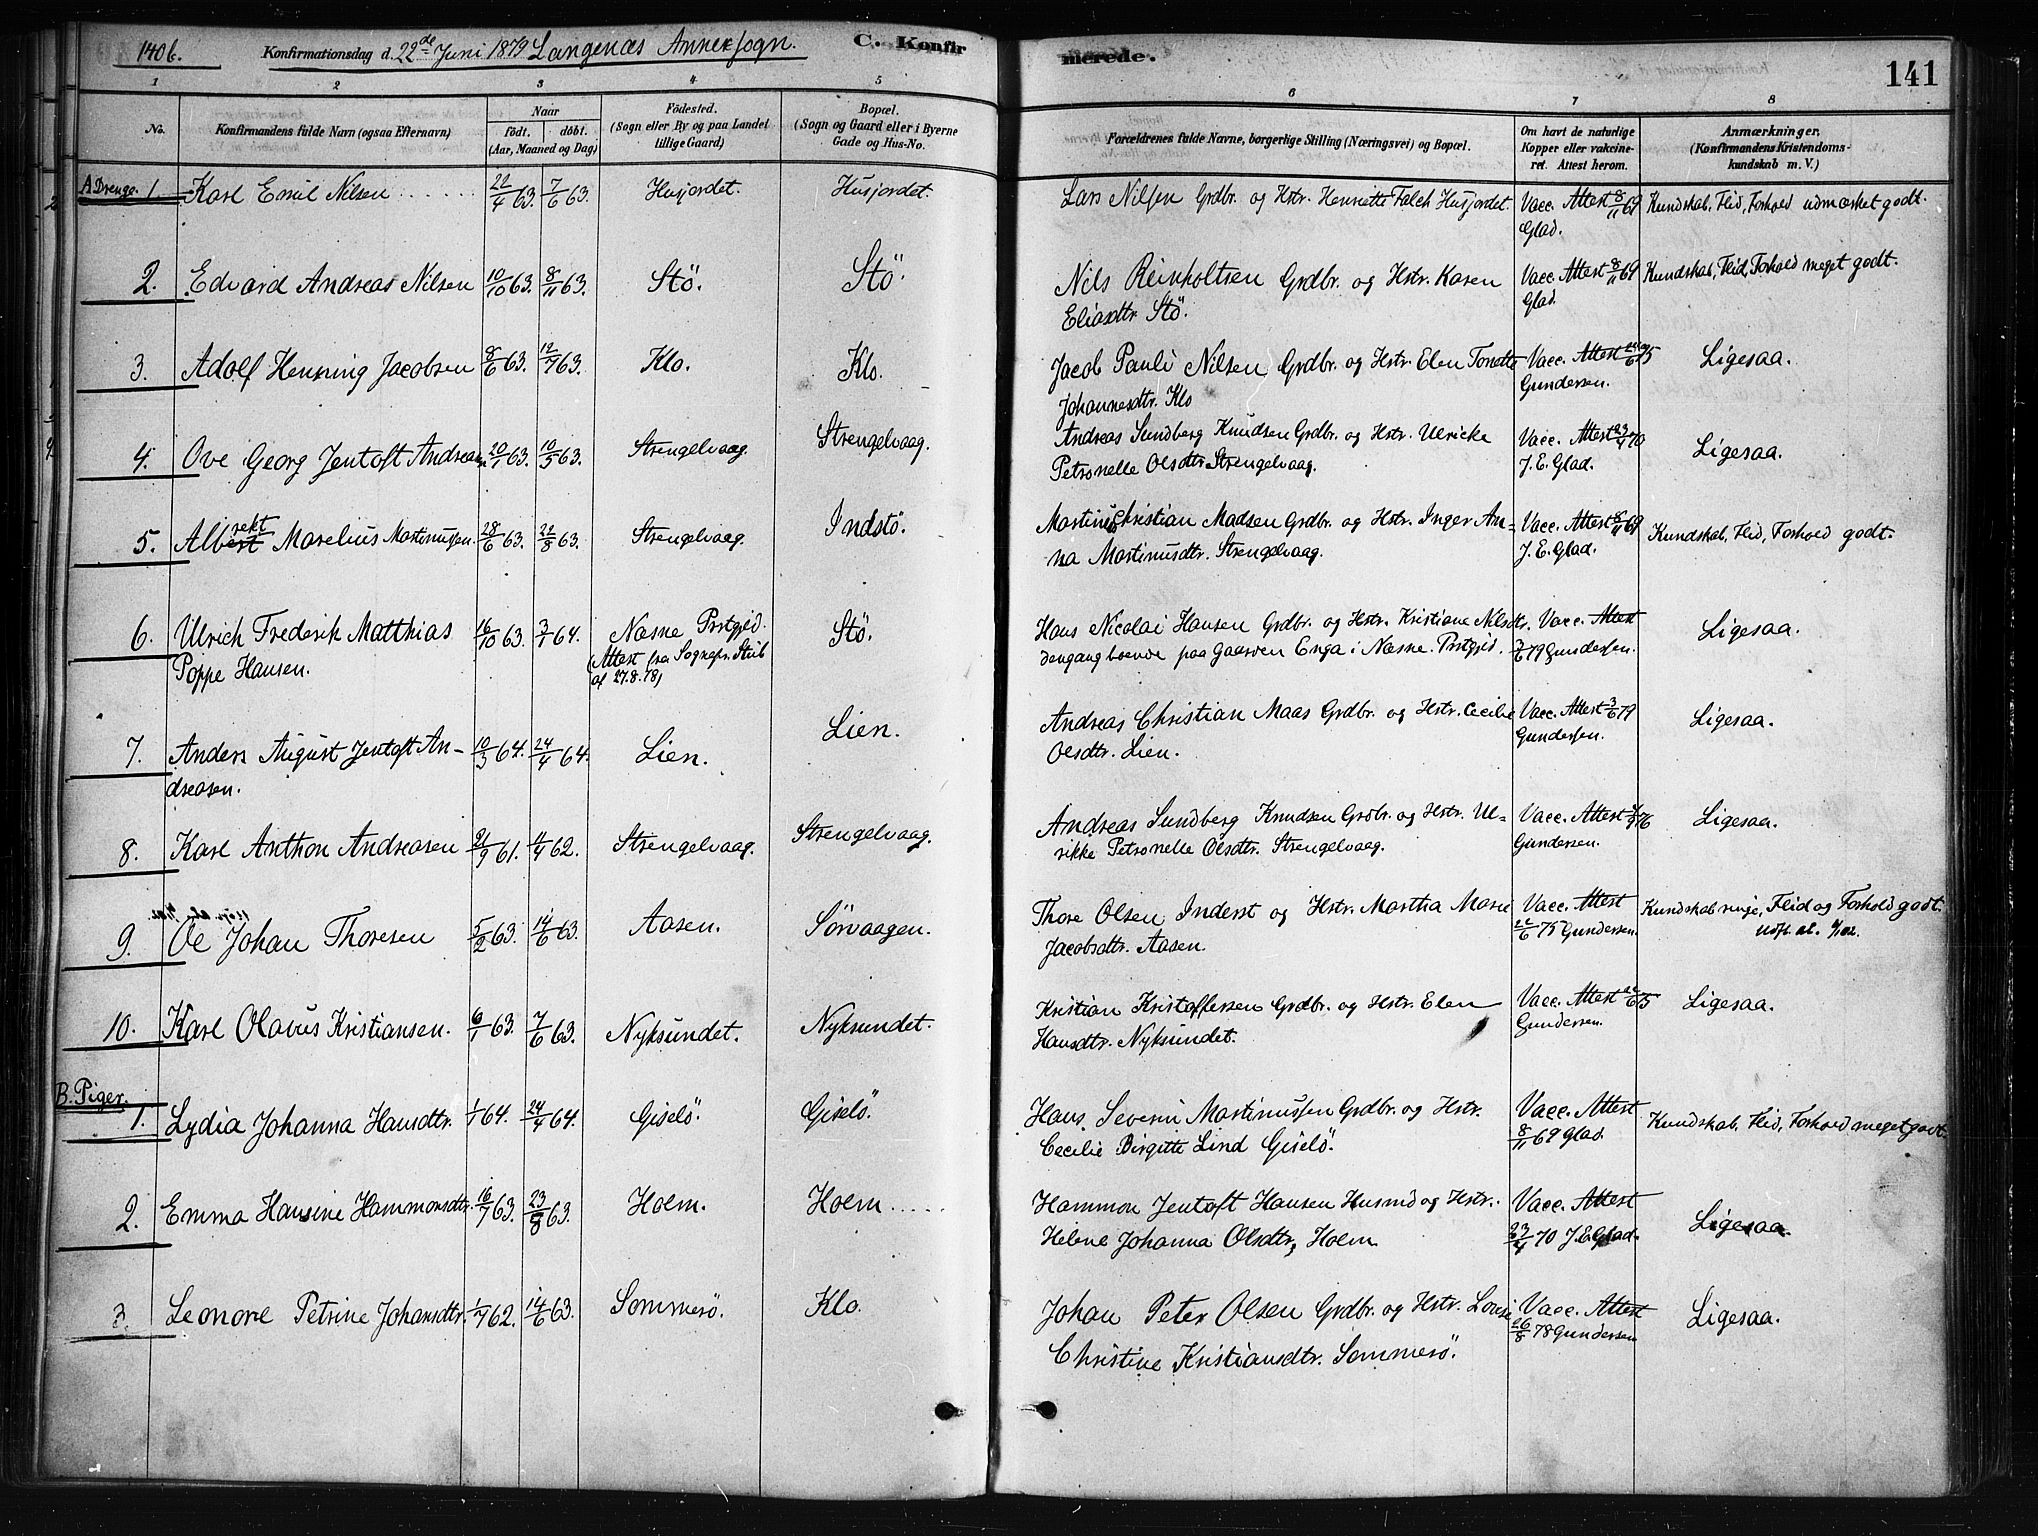 140b. Konfirmationsdag d. 22de Juni 1879 Langenæs Annexsogn. C. Konfir
merede. 141
1 2 3 4 5 6 7 8
No. Konfirmandens fulde Navn (ogsaa Efternavn) Naar født. døbt. (Aar, Maaned og Dag) Fødested. (Sogn eller By og paa Landet tillige Gaard) Bopæl. (Sogn og Gaard eller i Byerne Gade og Hus-No. Forældrenes fulde Navne, borgerlige Stilling (Næringsvei) og Bopæl. Om havt de naturlige Kopper eller vakcineret. Attest herom. Anmærkninger. (Konfirmandens Kristendomskundskab m. V.)
A Drenge. 1. Karl Emil Nilsen 22/4 63. 7/6 63. Husjordet. Husjordet. Lars Nilsen Grdbr. og Hstr. Henriette Falch Husjordet. Vacc. Attest 8/11 69 Kundskab, Flid, Forhold udmærket godt.
Glad.
2. Edvard Andreas Nilsen 10/10 63. 8/11 63. Stö. Stö. Nils Reinholtsen Grdbr. og Hstr. Karen Vacc. Attest 8/11 69 Kundskab, Flid, Forhold meget godt.
Eliasdtr Stö. Glad.
3. Adolf Henning Jacobsen 8/6 63. 12/7 63. Klo. Klo. Jacob Pauli Nilsen Grdbr. og Hstr. Elen Tonette Vacc. Attest 22/6 75 Ligesaa.
Johannesdtr. Klo Gundersen.
4. Ove Georg Jentoft Andreas. 20/1 63. 10/5 63. Strengelvaag. Strengelvaag. Andreas Sundberg Knudsen Grdbr. og Hstr. Ulricke Vacc. Attest 23/4 70 Ligesaa.
Petronelle Olsdtr Strengelvaag. J. E. Glad.
5. Albert rekt Marelius Martinussen. 28/6 63. 22/8 63. Strengelvaag. Indstö. Martinus Christian Madsen Grdbr. og Hstr. Inger An- Vacc. Attest 8/11 69 Kundskab, Flid, Forhold godt.
na Martinusdtr. Strengelvaag. J. E. Glad.
6. Ulrich Frederik Matthias 16/10 63. 3/1 64. Næsne Prstgjld. Stö. Hans Nicolai Hansen Grdbr. og Hstr. Kristiane Nilsdtr. Vacc. Attest Ligesaa.
Poppe Hansen. (Attest fra Sognepr. Stub dengang boende paa Gaarden Enga i Næsne. Prstgjld. 3/6 79 Gundersen.
af 27.8.78)
7. Anders August Jentoft An- 10/3 64. 24/4 64. Lien. Lien. Andreas Christian Maas Grdbr. og Hstr. Cecilie Vacc. Attest 3/6 79 Ligesaa.
dreasen. Olsdtr. Lien. Gundersen.
8. Karl Anthon Andreasen 21/9 61. 11/4 62. Strengelvaag. Strengelvaag. Andreas Sundberg Knudsen Grdbr. og Hstr. Ul- Vacc. Attest 76 Ligesaa.
rikke Petronelle Olsdtr. Strengelvaag. Gundersen.
9. Ole Johan Thoresen 5/2 63. 14/6 63. Aasen. Sörvaagen. Thore Olsen Inderst og Hstr. Martha Marie Vacc. Attest Kundskab ringe, Flid og Forhold godt.
Jacobsdtr. Aasen. 22/6 75 Gundersen.
10. Karl Olavus Kristiansen. 6/1 63. 7/6 63. Nyksundet. Nyksundet. Kristian Kristoffersen Grdbr. og Hstr. Elen Vacc. Attest 22/6 75 Ligesaa.
Hansdtr. Nyksundet. Gundersen.
B. Piger. 1. Lydia Johanna Hansdtr. 1/1 64. 24/4 64. Giselö. Giselö. Hans Severin Martinussen Grdbr. og Hstr. Vacc. Attest Kundskab, Flid, Forhold meget godt.
Cecilie Birgitte Lind Giselö. 8/11 69 Glad.
2. Emma Hansine Hammonsdtr. 16/7 63. 23/8 63. Holm. Holm Hammon Jentoft Hansen Husmd og Hstr. Vacc. Attest Ligesaa.
Helene Johanna Olsdtr, Holm 23/4 70 J.E. Glad.
3. Leonore Petrine Johansdtr. 1/7 62. 14/6 63. Sommerö. Klo. Johan Peter Olsen Grdbr. og Hstr. Lovise Vacc. Attest Ligesaa.
Christine Kristiansdtr. Sommerö. 26/8 78 Gundersen